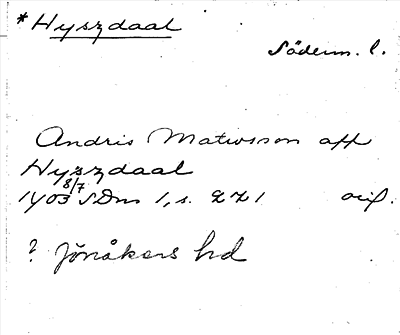 * Hyszdaal
Söderm. l.
Andris Matiosson aff
Hyszdaal
8/7
1403 SDns 1, s. 221 orig.
? Jönåkers hd